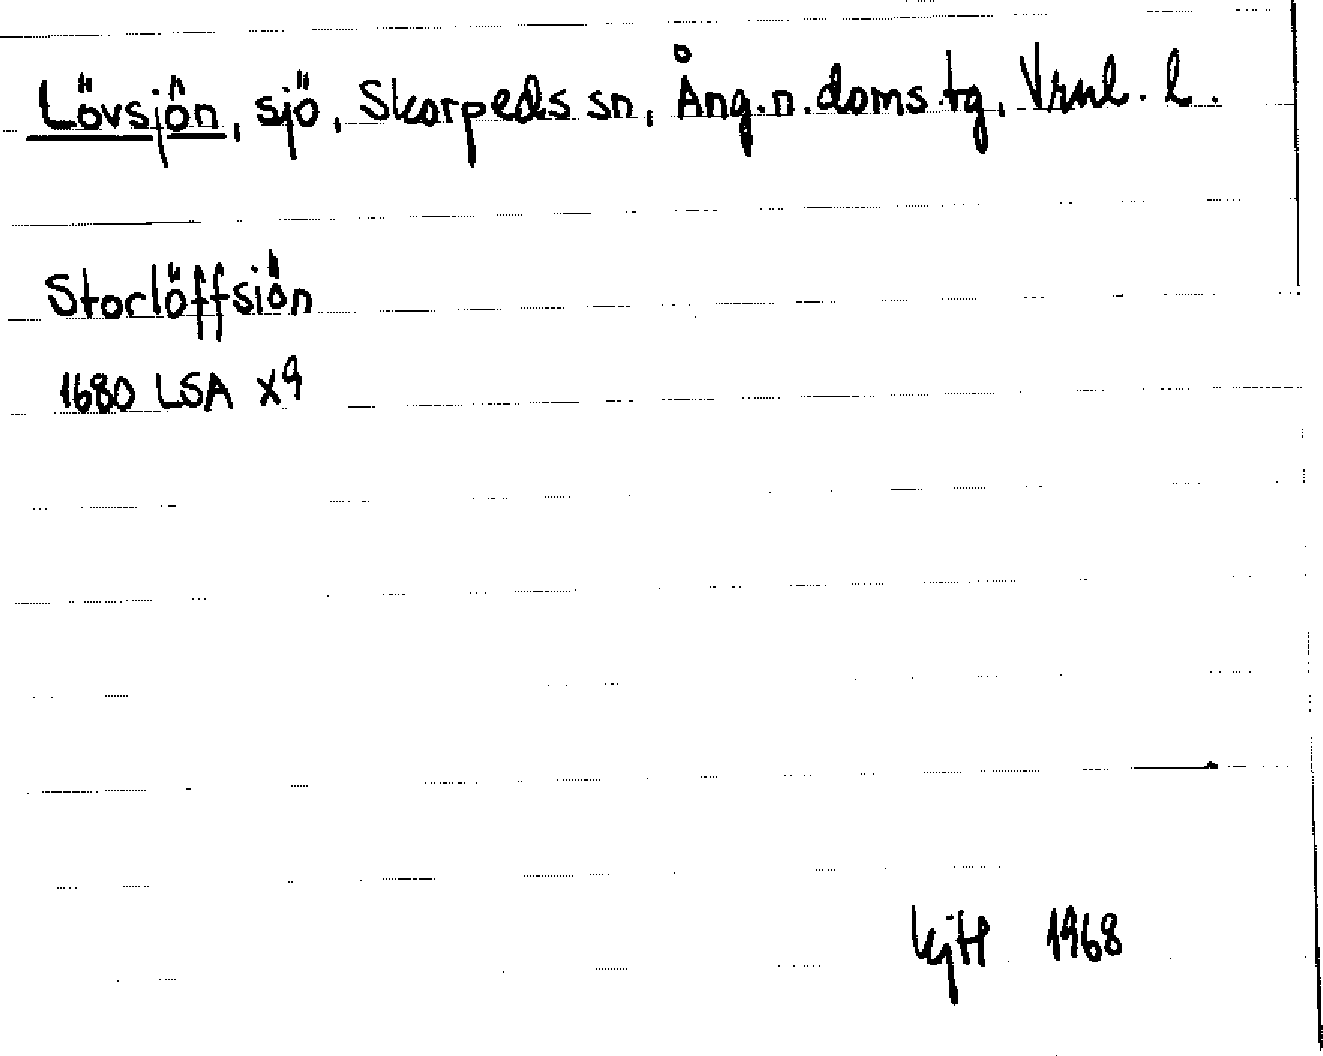 Lövsjön, sjö, Skorpeds sn, Ång.n.doms.tg, Vrnl. l.
Storlöffsiön
1680 LSA X9
KjH 1968